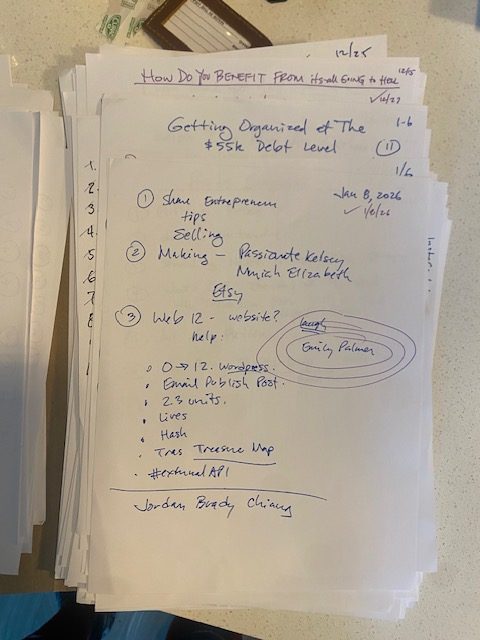 12/25
How Do You BENEFIT From its all GOING to HELL
12/5
✓12/27
Getting Organized at The
$55k Debt Level
1-6
11
1/6
Jan 8, 2026
✓ 1/8/26
① Share Entrepreneur
tips
Selling
② Making - Passionate Kelsey
Myniah Elizabeth
Etsy
③ Web 12 - website?
help:
laugh
Emily Palmer
• 0 → 12. wordpress.
• Email Publish Post.
• 2.3 units.
• Lives
• Hash
• Tras Treasure Map
• #externalAPI
Jordan Brady Chiang
1.
2.
3
4.
5
6
7
8